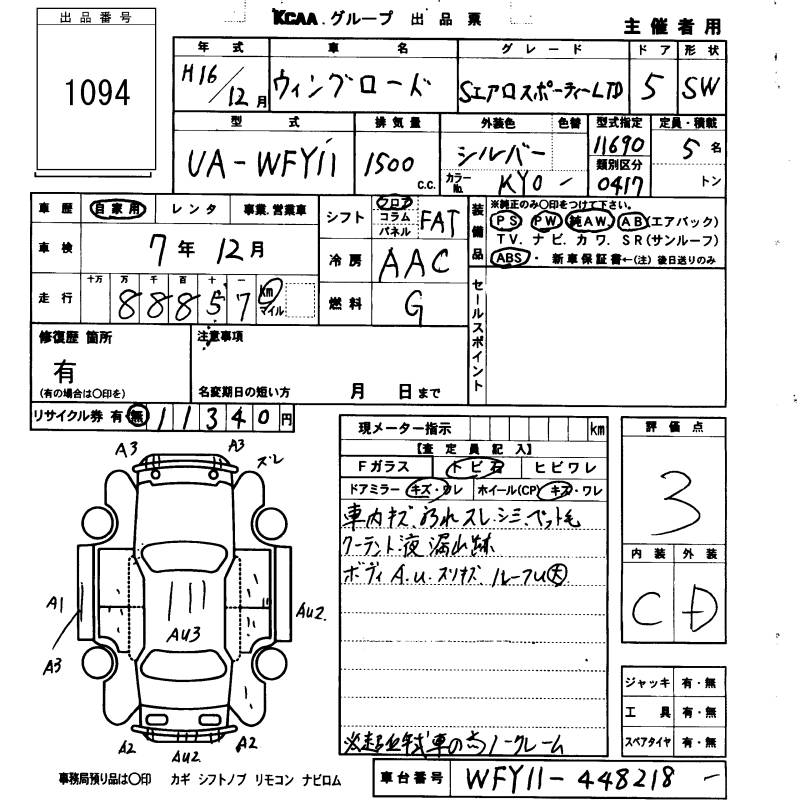 出品番号
1094
KCAA.グループ 出品票
主催者用
年式 車名 グレード ドア 形状
H16/12月 ウィングロード Sエアロスポーティー LTD 5 SW
型式 排気量 外装色 色替 型式指定 定員・積載
UA-WFY11 1500 C.C. シルバー 11690 5名
カラーNo. KY0 - 類別区分 0417 トン
車歴 自家用 レンタ 事業.営業車
シフト フロア コラム パネル FAT
装備品
※純正のみ〇印をつけて下さい。
PS PW 純AW. AB(エアバック)
TV. ナビ. カワ. SR(サンルーフ)
ABS・ 新車保証書←(注) 後日送りのみ
車検 7年 12月
冷房 AAC
走行 十万 万 千 百 十 一
88857 km マイル
燃料 G
セールスポイント
修復歴 箇所
有
(有の場合は〇印を)
注意事項
名変期日の短い方 月 日まで
リサイクル券 有 無 11340円
現メーター指示 km
【査定員記入】
Fガラス トビ石 ヒビワレ
ドアミラー キズ・ワレ ホイール(CP) キズ・ワレ
車内キズ.よごれ スレ.シミ.ペット毛
クーラント液漏出跡
ボディ A.U.スリキズ ルーフU大
※超低年式車の為ノークレーム
評価点
3
内装 外装
C D
ジャッキ 有・無
工具 有・無
スペアタイヤ 有・無
A3 A3 ズレ
A1 AU3 AU2.
A3
A2 AU2 A2
事務局預り品は〇印 カギ シフトノブ リモコン ナビロム
車台番号 WFY11-448218 -